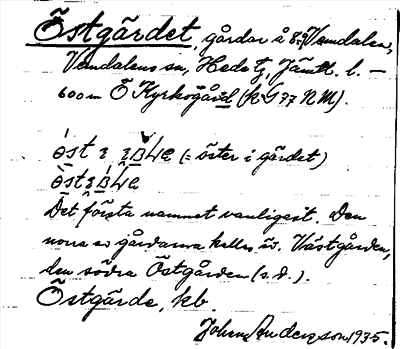 Östgärdet, gårdar å 8:? Vemdalen,
Vemdalens sn, Hede tg, Jämtl. l. —
600 m Ö Kyrkogård (k G 77 N M).
(= öster i gärdet)
Det första namnet vanligast. Den
norra av gårdarna kallas äv. Västgården,
den södra Östgården (s.d.).
Östgärde, kb.
Johan Anderzson 1935.